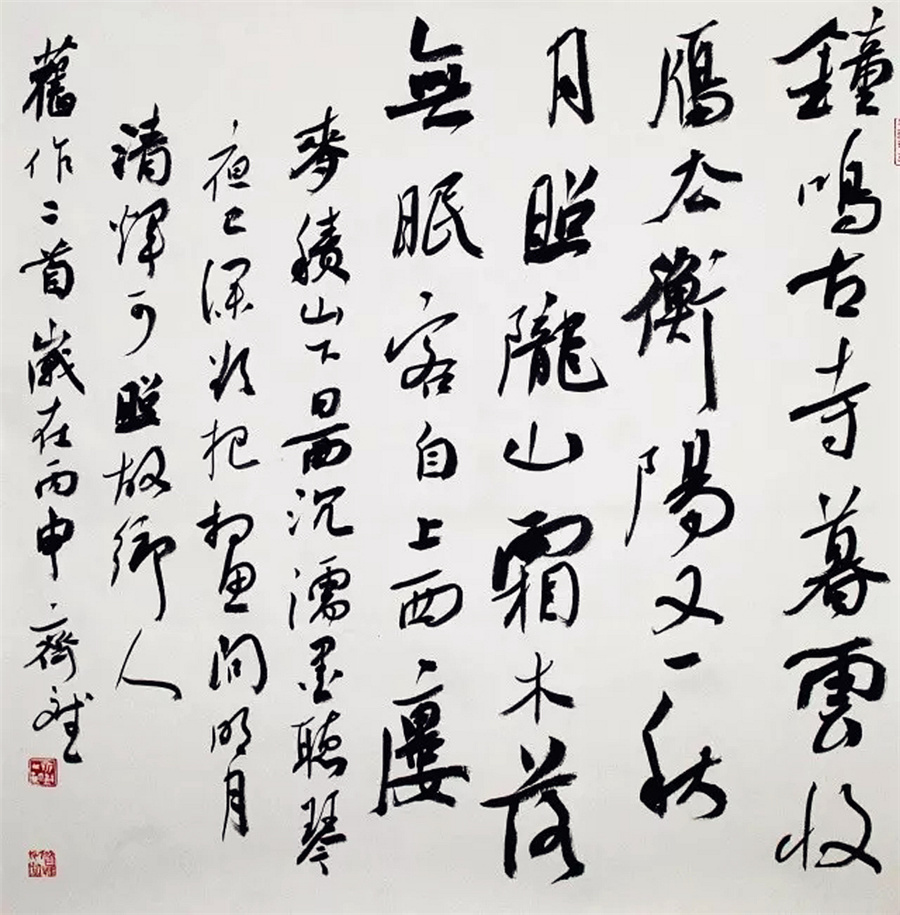 鐘鳴古寺暮雲收
鴈去衡陽又一秋
月照隴山霜木落
無眠客自上西廔
麥積山下日西沉濡墨聽琴
夜已深欲把相思問明月
清輝可照故鄉人
舊作二首歲在丙申齊斌